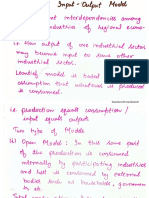 Input - Output Model
interdependencies among
industries of regional econom
i.e How output of one industrial sector
may become input to some other
industrial sector.
Leontief model is based
assumption that output is consumed
i.e. production equals consumption /
input equals output.
Two type of Models
① Open Model: In this some part
of the production is consumed
internally by participating industrial
and left is consumed by external
bodies such as households, governmen
etc.